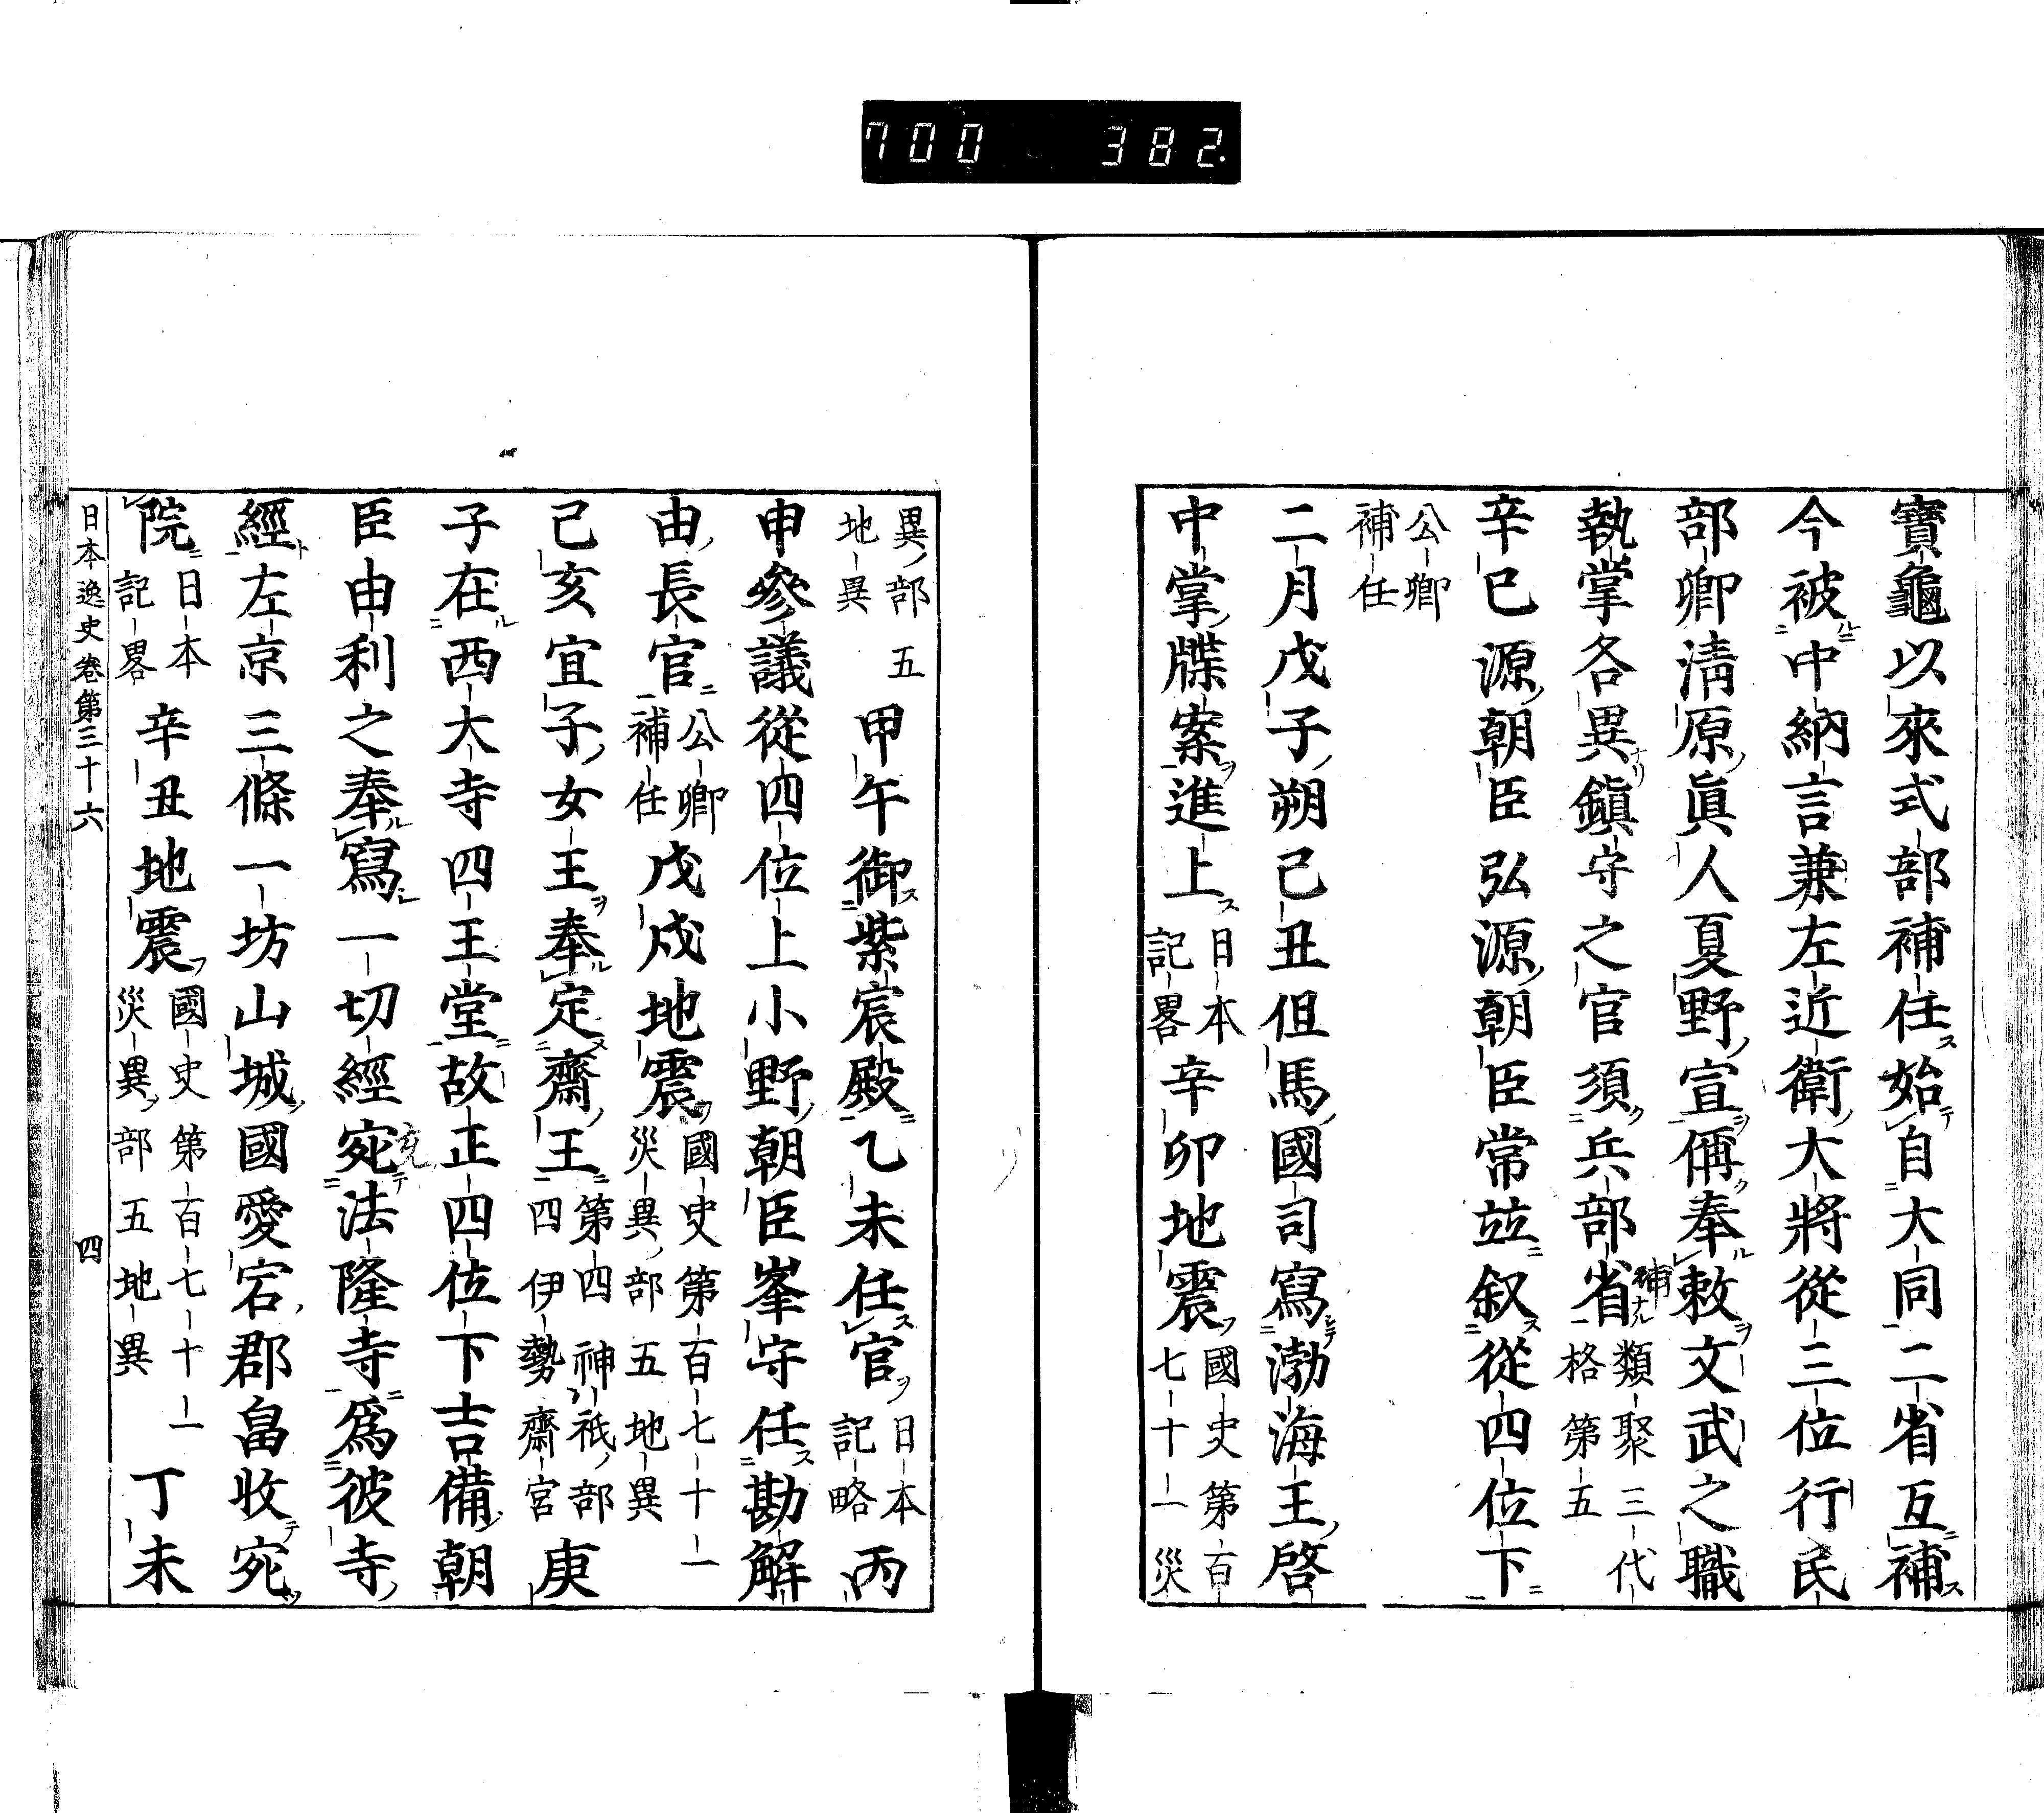 700 382.
寶龜以來式部補任始自大同二省互補
今被中納言兼左近衛大將從三位行民
部卿淸原眞人夏野宣偁奉敕文武之職
執掌各異鎭守之官須兵部省補類聚三代格第五
辛巳源朝臣弘源朝臣常竝叙從四位下
公卿補任
二月戊子朔己丑但馬國司寫渤海王啓
中掌牒案進上日本記畧辛卯地震國史第百七十一災
異部五地異甲午御紫宸殿乙未任官日本記略丙
申參議從四位上小野朝臣峯守任勘解
由長官公卿補任戊戍地震國史第百七十一災異部五地異
己亥宜子女王奉定齋王第四神祇部四伊勢齋宮庚
子在西大寺四王堂故正四位下吉備朝
臣由利之奉寫一切經宛充法隆寺爲彼寺
經左京三條一坊山城國愛宕郡畠收宛
院日本記畧辛丑地震國史第百七十一災異部五地異丁未
日本逸史卷第三十六 四